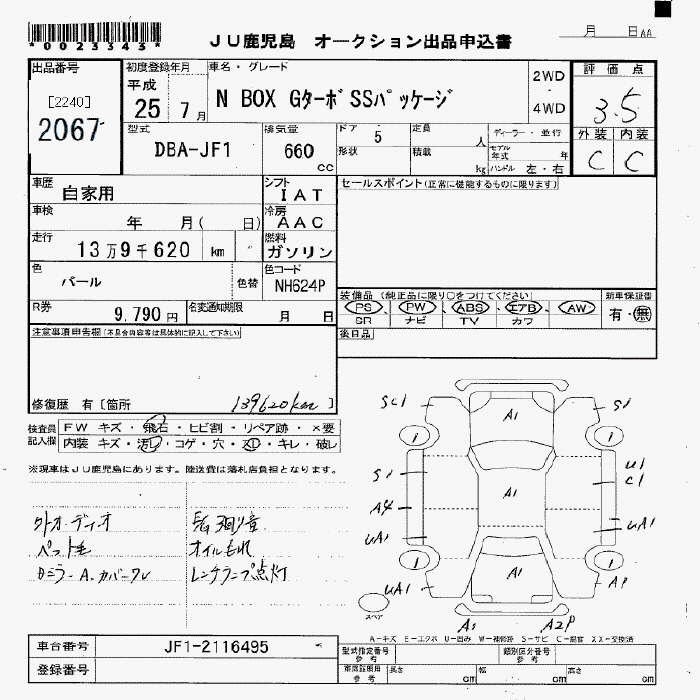 *0023343*
ＪＵ鹿児島 オークション出品申込書
月 日 AA
出品番号
[2240]
2067
初度登録年月
平成
25 7月
車名・グレード
N BOX GターボSSパッケージ
2WD
・
4WD
評価点
3.5
外装 内装
C C
型式
DBA-JF1
排気量
660
cc
ドア 5
形状
定員 人
積載 kg
ディーラー・並行
モデル年式 年
ハンドル 左・右
車歴
自家用
シフト
IAT
セールスポイント(正常に機能するものに限ります)
車検
年 月( 日)
冷房
AAC
走行
13万9千620 km
燃料
ガソリン
色
パール
色替
色コード
NH624P
R券
9,790円
名変通知期限
月 日
装備品(純正品に限り○をつけてください)
PS、PW、ABS、エアB、AW
SR ナビ TV カワ
新車保証書
有・無
注意事項申告欄(不具合内容等は具体的に記入して下さい)
後日品
修復歴 有〔箇所 139620km 〕
検査員
記入欄
FW キズ・飛石・ヒビ割・リペア跡・×要
内装 キズ・汚レ・コゲ・穴・スレ・キレ・破レ
※現車はＪＵ鹿児島にあります。陸送費は落札店負担となります。
外オーディオ
ペット毛
オイルもれ
レンチランプ点灯
A1
SC1
S1
1
1
S1
A1
U1
C1
A4
UA1
UA1
1
1
A1
UA1
A1
スペア
A2P
A－キズ E－エクボ U－凹み W－補修跡 S－サビ C－腐食 XX－交換済
車台番号
JF1-2116495
登録番号
型式指定番号
参考
類別区分番号
参考
車庫証明用
参考
長さ cm
幅 cm
高さ cm